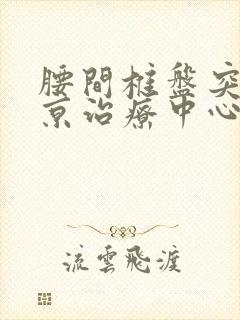 腰間椎盤突
京治療中心
流雲飛渡